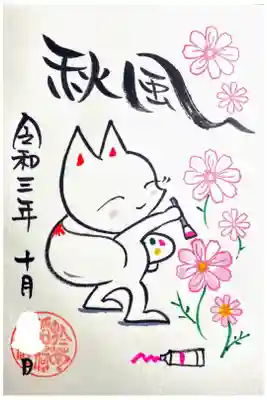 秋風
令和三年 十月
日